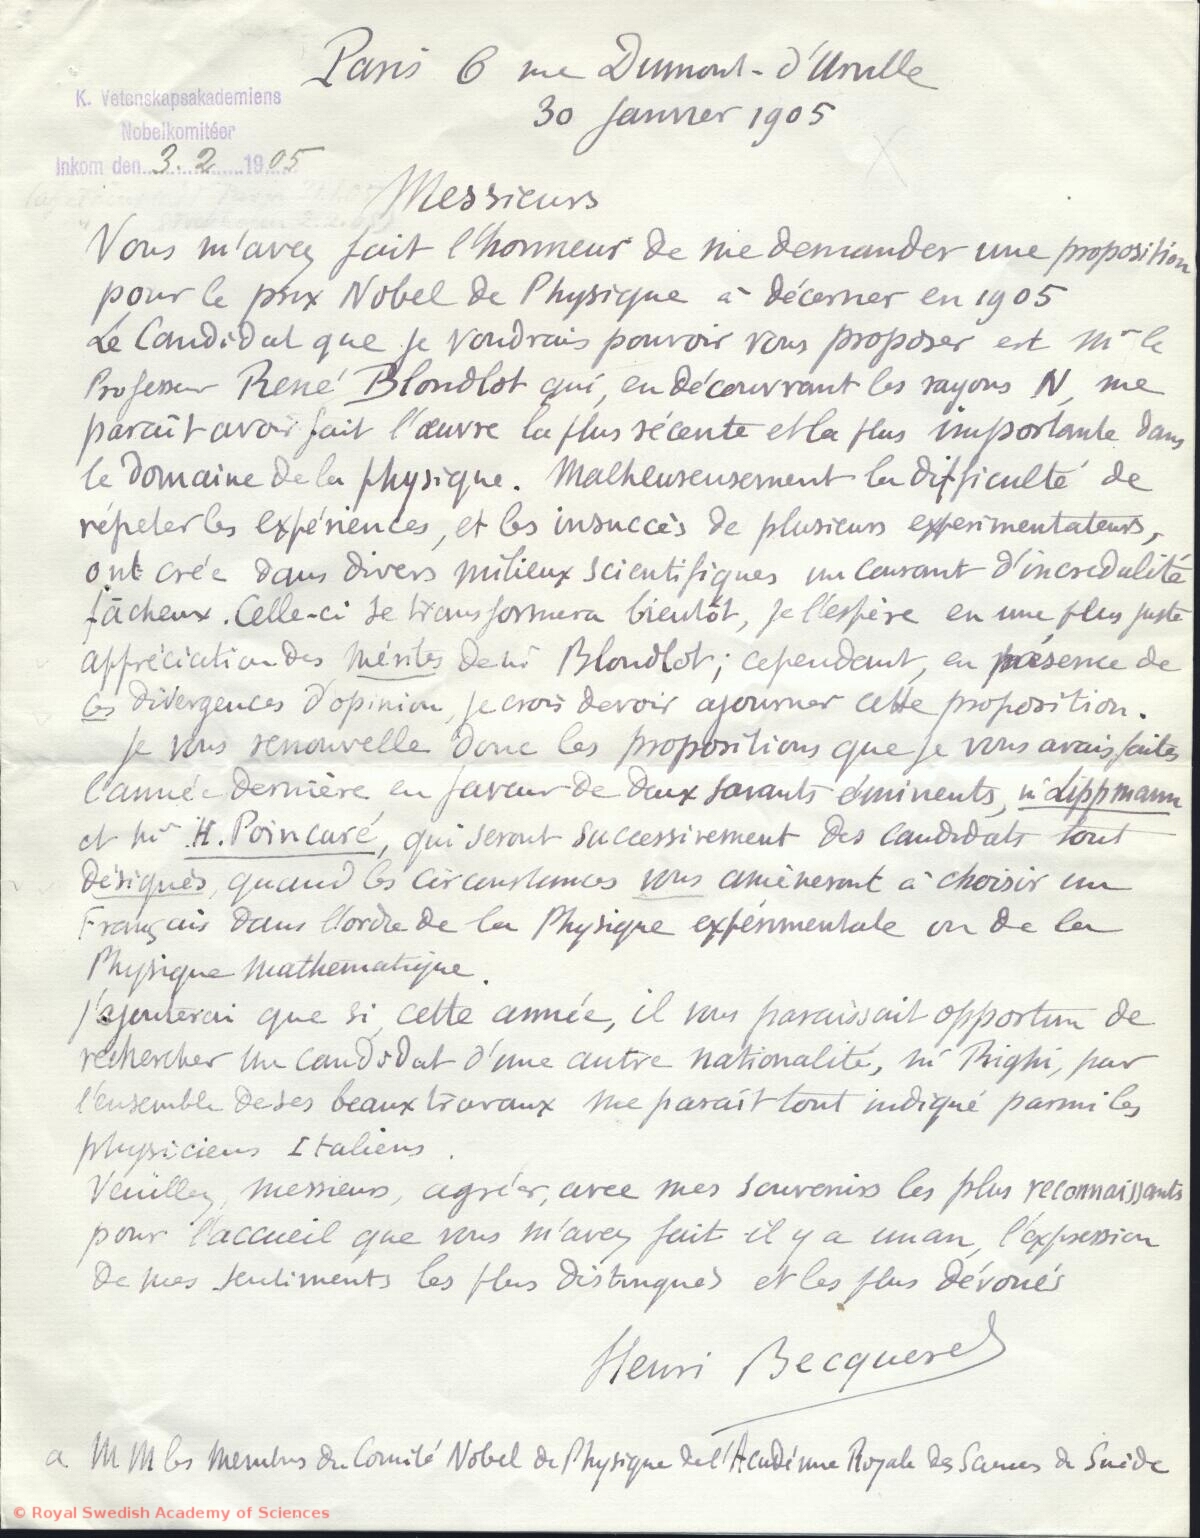 Paris 6 rue Dumont-d'Urville
30 Janvier 1905
K. Vetenskapsakademiens
Nobelkomitéer
Inkom den 3. 2 1905
Messieurs
Vous m'avez fait l'honneur de me demander une proposition
pour le prix Nobel de Physique à décerner en 1905
Le Candidat que je voudrais pouvoir vous proposer est Mr le
Professeur René Blondlot qui, en découvrant les rayons N, me
paraît avoir fait l'œuvre la plus récente et la plus importante dans
le domaine de la physique. Malheureusement la difficulté de
répéter les expériences, et les insuccès de plusieurs experimentateurs,
ont crée dans divers milieux scientifiques un courant d'incredulité
fâcheux. Celle-ci se transformera bientôt, je l'espère en une plus juste
appréciation des mérites de Mr Blondlot; cependant, en présence de
ces divergences d'opinion, je crois devoir ajourner cette proposition.
Je vous renouvelle donc les propositions que je vous avais faites
l'année dernière en faveur de deux savants éminents, Mr Lippmann
et Mr H. Poincaré, qui seront successivement des candidats tout
désignés, quand les circonstances vous amèneront à choisir un
Français dans l'ordre de la Physique expérimentale ou de la
Physique mathematique.
J'ajouterai que si, cette année, il vous paraissait opportun de
rechercher un candidat d'une autre nationalité, Mr Righi, par
l'ensemble de ses beaux travaux me paraît tout indiqué parmi les
physiciens Italiens.
Veuillez, messieurs, agréer, avec mes souvenirs les plus reconnaissants
pour l'accueil que vous m'avez fait il y a un an, l'expression
de mes sentiments les plus distingués et les plus dévoués
Henri Becquerel
a MM les Membres du Comité Nobel de Physique de l'Académie Royale des Sciences de Suède
© Royal Swedish Academy of Sciences